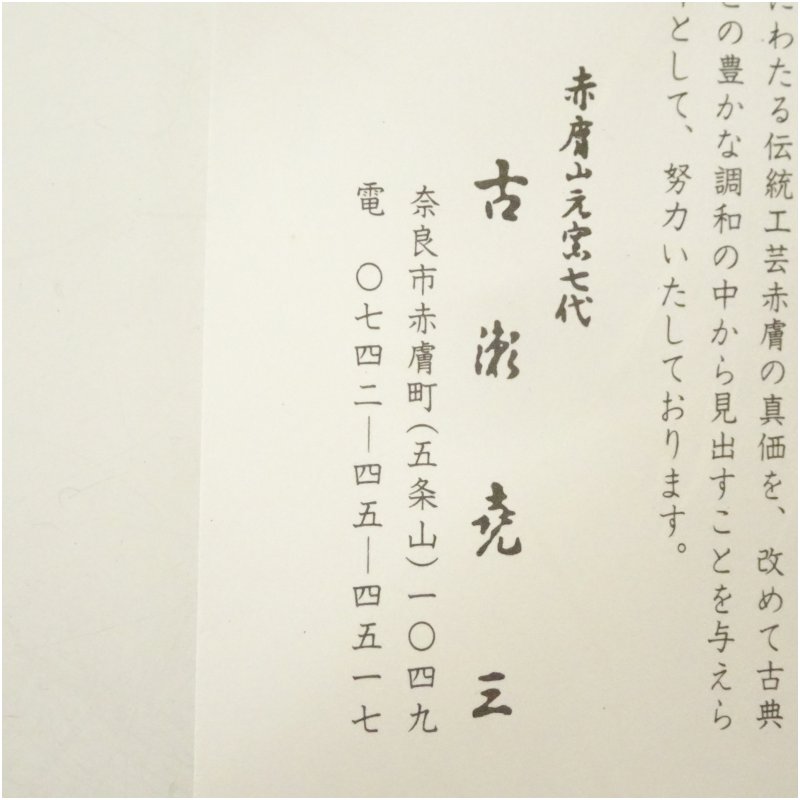 にわたる伝統工芸赤膚の真価を、改めて古典
の豊かな調和の中から見出すことを与えら
として、努力いたしております。
赤膚山元窯七代
古瀬堯三
奈良市赤膚町(五条山)一〇四九
電 〇七四二―四五―四五一七